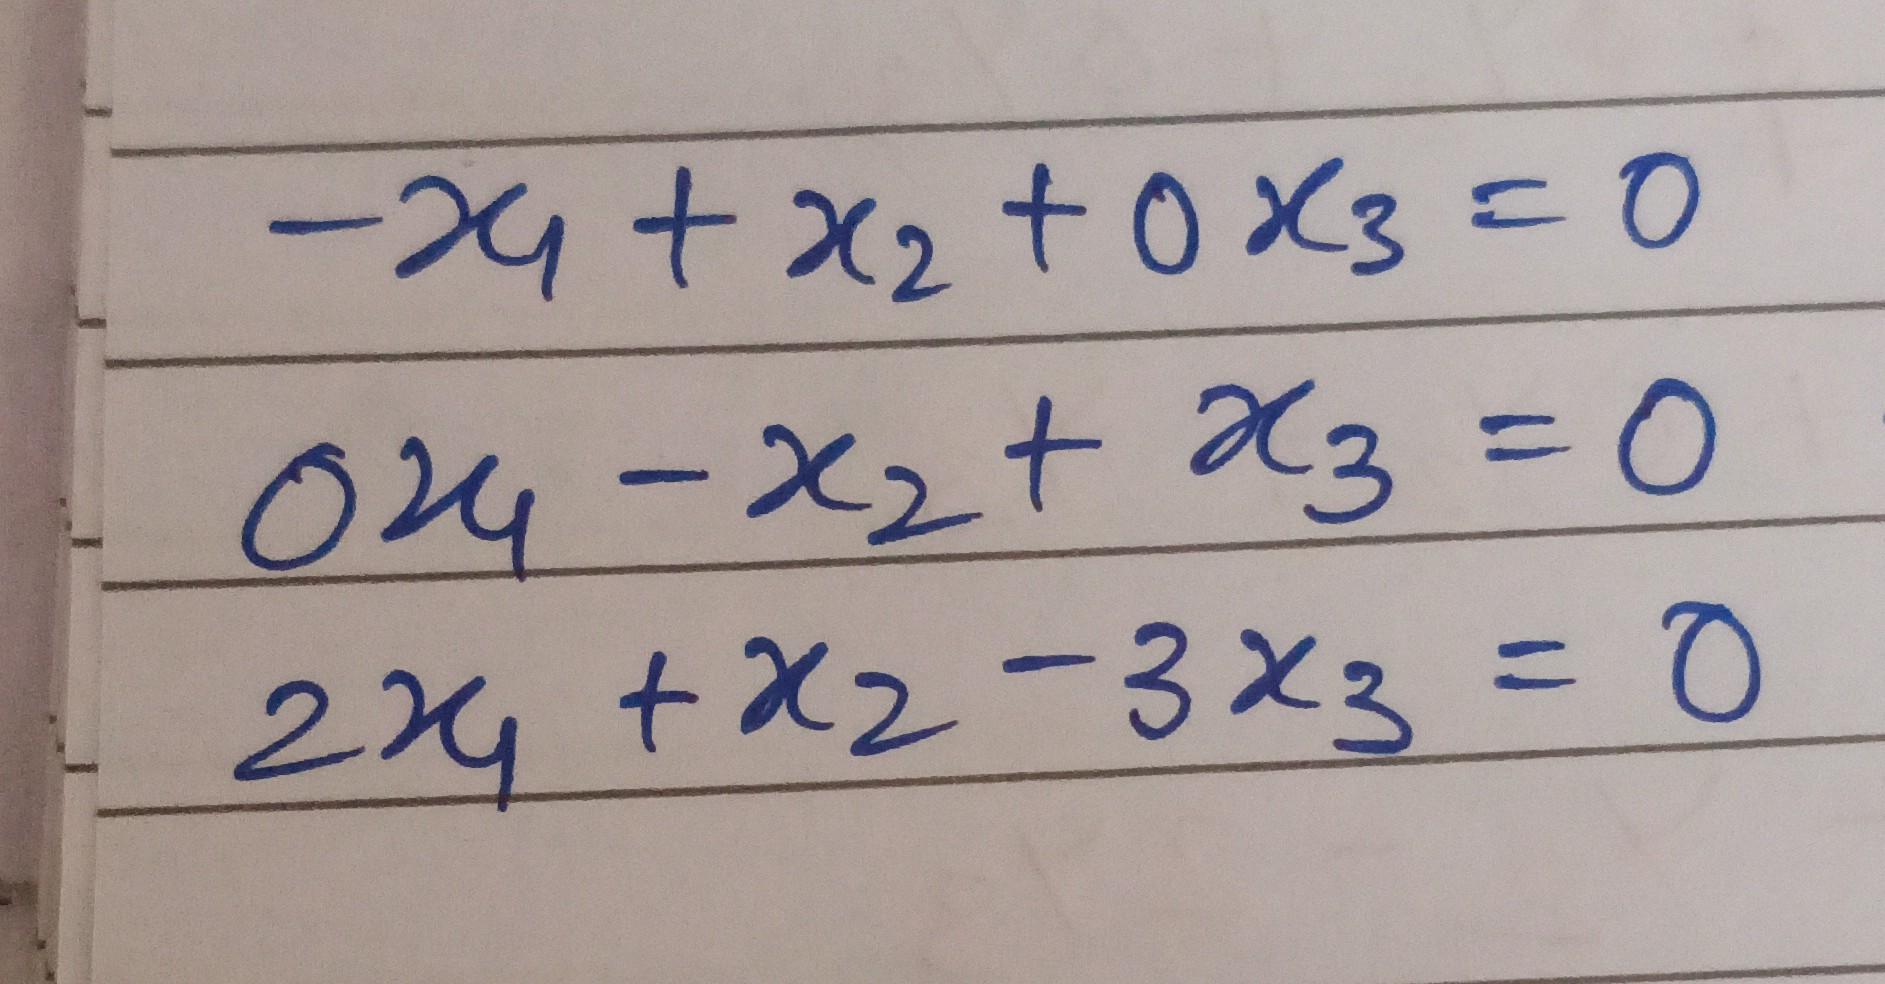 -x₁ + x₂ + 0x₃ = 0
0x₁ - x₂ + x₃ = 0
2x₁ + x₂ - 3x₃ = 0